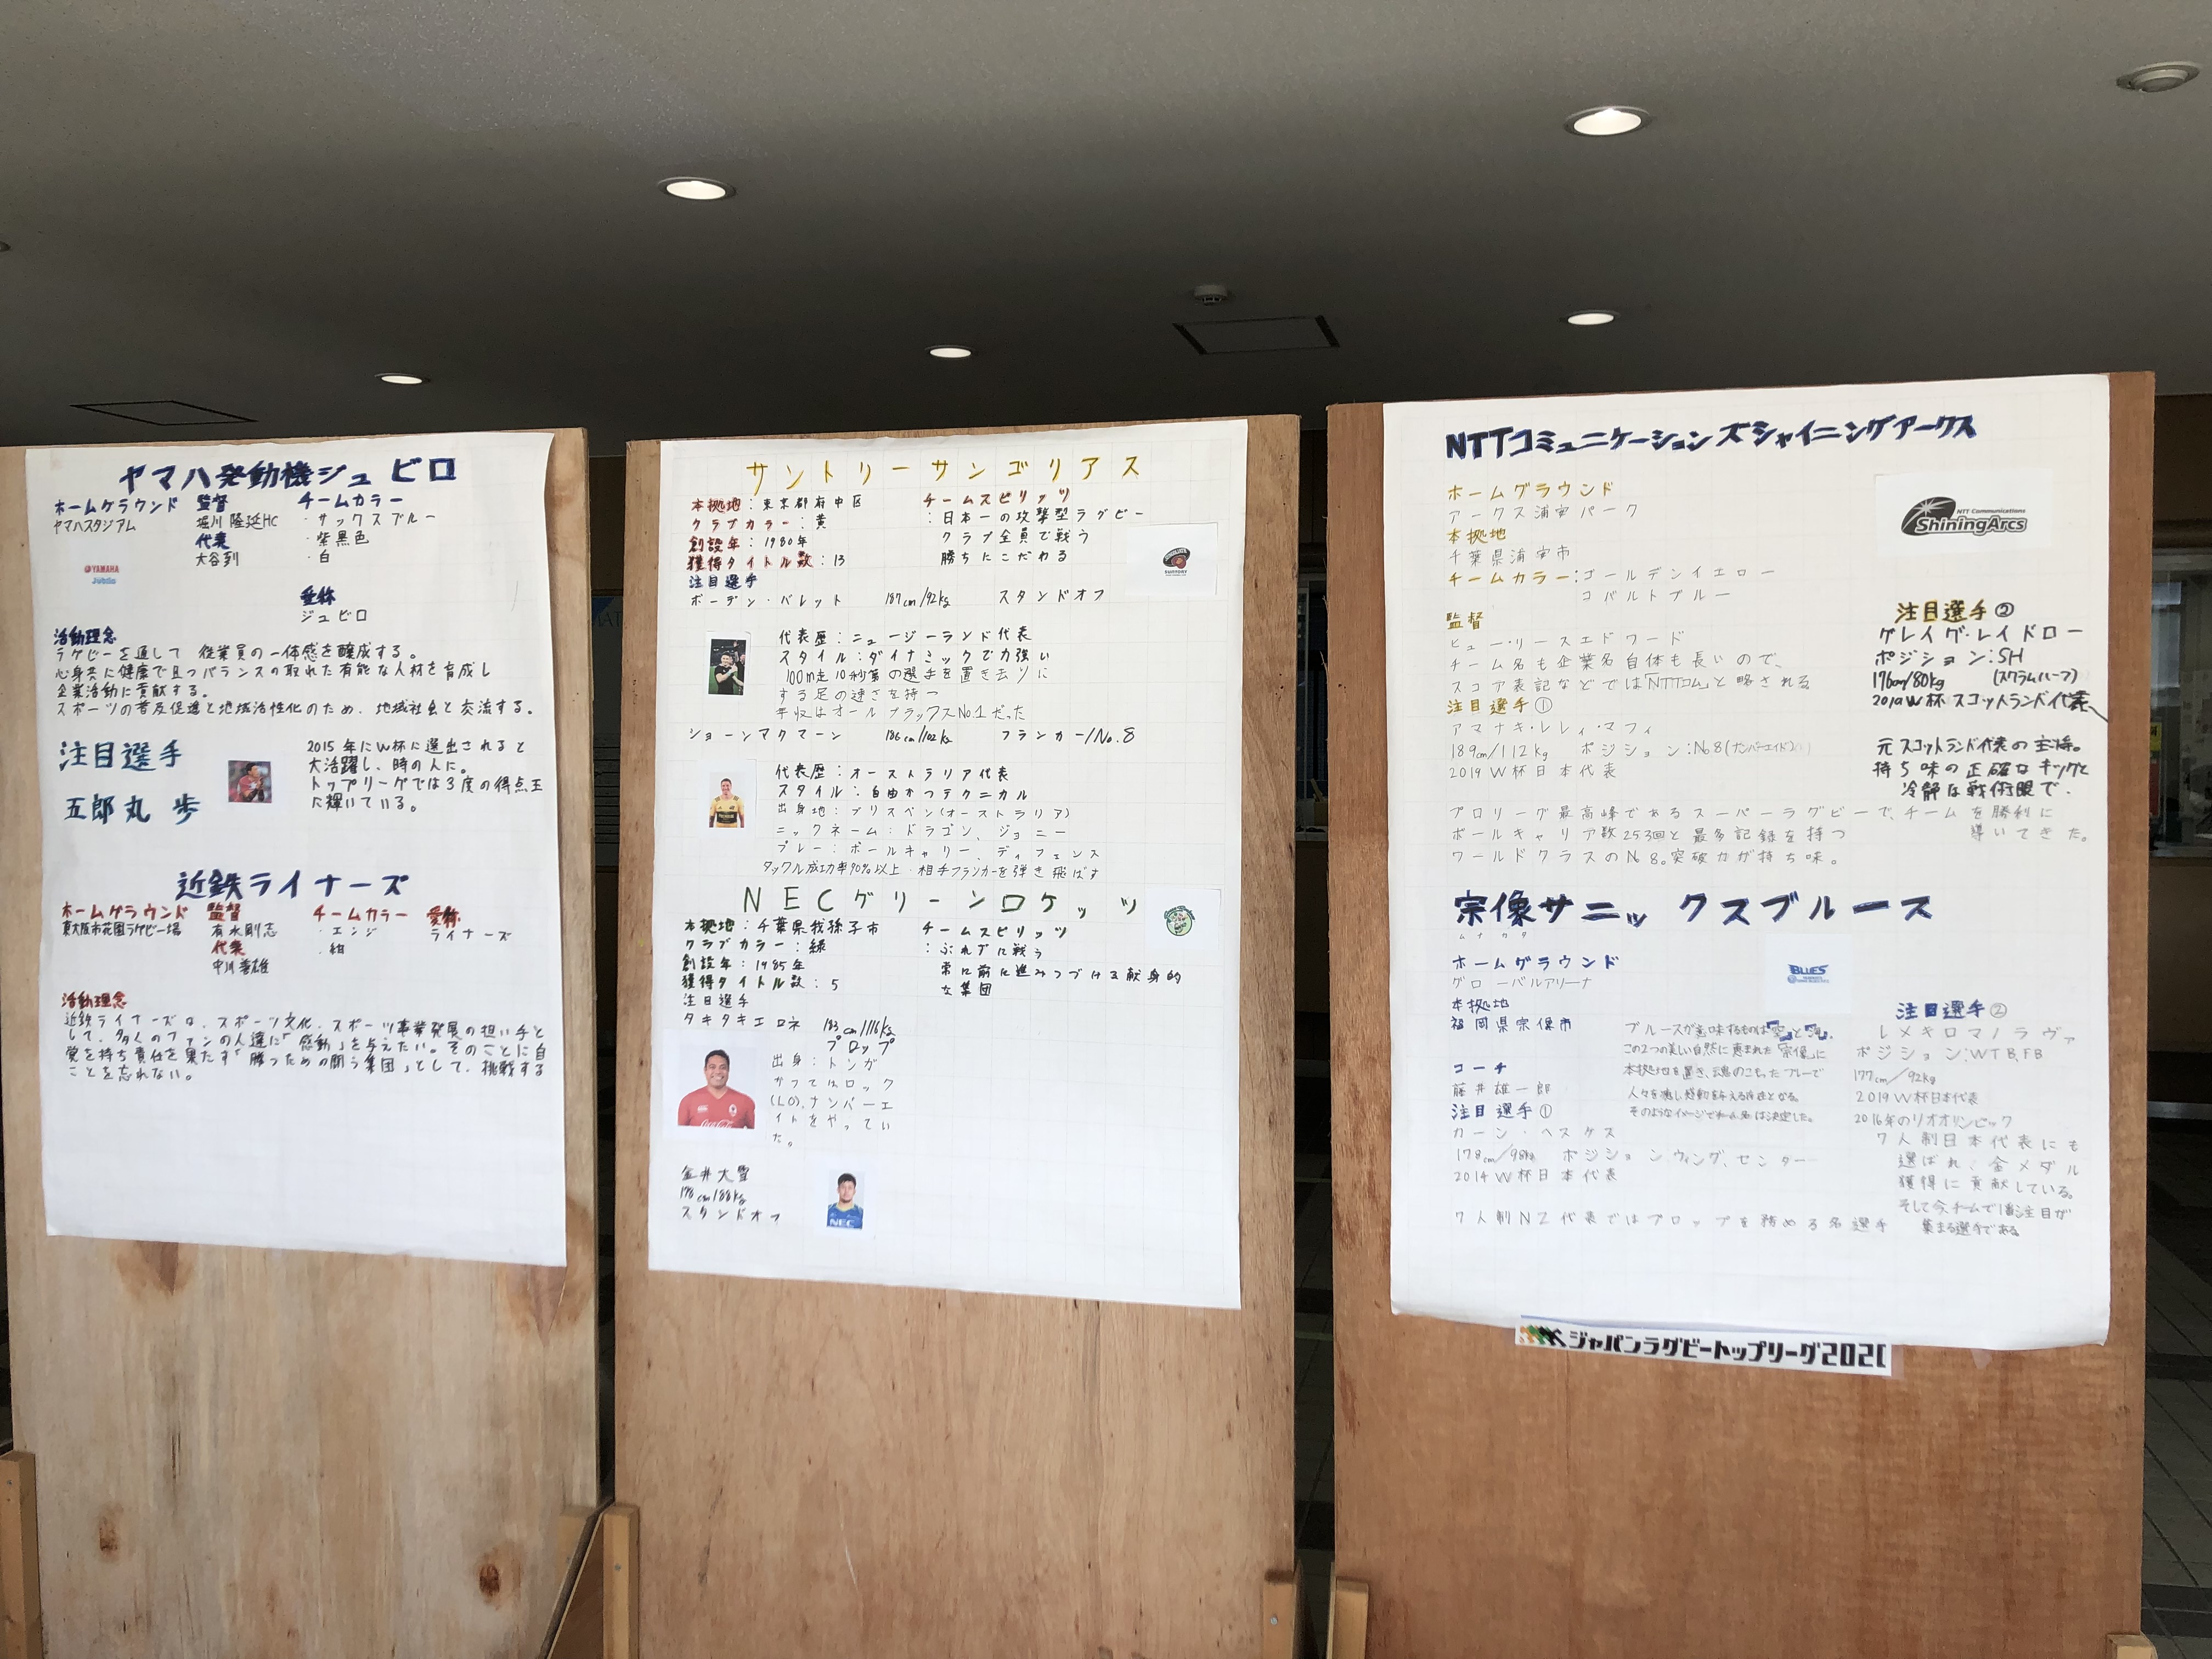 ヤマハ発動機ジュビロ
ホームグラウンド
ヤマハスタジアム
監督
堀川隆延HC
代表
大谷到
チームカラー
・サックスブルー
・紫黒色
・白
YAMAHA
Jubilo
愛称
ジュビロ
活動理念
ラグビーを通して 従業員の一体感を醸成する。
心身共に健康で且つバランスの取れた有能な人材を育成し
企業活動に貢献する。
スポーツの普及促進と地域活性化のため、地域社会と交流する。
注目選手
五郎丸 歩
2015年にW杯に選出されると
大活躍し、時の人に。
トップリーグでは3度の得点王
に輝いている。
近鉄ライナーズ
ホームグラウンド
東大阪市花園ラグビー場
監督
有水剛志
代表
中川善雄
チームカラー
・エンジ
・紺
愛称
ライナーズ
活動理念
近鉄ライナーズは、スポーツ文化・スポーツ事業発展の担い手と
して、多くのファンの人達に「感動」を与えたい。そのことに自
覚を持ち責任を果たす「勝つための闘う集団」として、挑戦する
ことを忘れない。
サントリーサンゴリアス
本拠地：東京都府中区
クラブカラー：黄
創設年：1980年
獲得タイトル数：13
チームスピリッツ
：日本一の攻撃型ラグビー
クラブ全員で戦う
勝ちにこだわる
注目選手
ボーデン・バレット 187cm/92kg スタンドオフ
代表歴：ニュージーランド代表
スタイル：ダイナミックで力強い
100m走10秒第の選手を置き去りに
する足の速さを持つ
年収はオールブラックスNo.1だった
ショーンマクマーン 186cm/102kg フランカー/No.8
代表歴：オーストラリア代表
スタイル：自由かつテクニカル
出身地：ブリスベン(オーストラリア)
ニックネーム：ドラゴン、ジョニー
プレー：ボールキャリー、ディフェンス
タックル成功率90%以上・相手フランカーを弾き飛ばす
NECグリーンロケッツ
本拠地：千葉県我孫子市
クラブカラー：緑
創設年：1985年
獲得タイトル数：5
チームスピリッツ
：ぶれずに戦う
常に前に進みつづける献身的
な集団
注目選手
タキタキエロネ 183cm/116kg
プロップ
出身：トンガ
かつてはロック
(LO)、ナンバーエ
イトをやってい
た。
金井大雪
178cm/88kg
スタンドオフ
NEC
NTTコミュニケーションズシャイニングアークス
ホームグラウンド
アークス浦安パーク
本拠地
千葉県浦安市
チームカラー：ゴールデンイエロー
コバルトブルー
NTT Communications
ShiningArcs
監督
ヒュー・リースエドワード
チーム名も企業名自体も長いので、
スコア表記などでは「NTTコム」と略される
注目選手①
アマナキ・レレィ・マフィ
189cm/112kg ポジション：No8(ナンバーエイト)
2019W杯日本代表
プロリーグ最高峰であるスーパーラグビーで、チームを勝利に
ボールキャリア数253回と最多記録を持つ
ワールドクラスのNo8。突破力が持ち味。
注目選手②
グレイグ・レイドロー
ポジション：SH
176cm/80kg (スクラムハーフ)
2019W杯スコットランド代表
元スコットランド代表の主将。
持ち味の正確なキックと
冷静な戦術眼で、
導いてきた。
宗像サニックスブルース
ムナカタ
ホームグラウンド
グローバルアリーナ
本拠地
福岡県宗像市
BLUES
コーチ
藤井雄一郎
ブルースが意味するものは空と海。
この2つの美しい自然に恵まれた「宗像」に
本拠地を置き、魂のこもったプレーで
そのようなイメージでチーム名は決定した。
注目選手①
カーン・ヘスケス
178cm/98kg ポジション ウィング、センター
2014W杯日本代表
7人制NZ代表ではプロップを務める名選手
注目選手②
レメキロマノラヴァ
ポジション：WTB,FB
177cm/92kg
2019W杯日本代表
2016年のリオオリンピック
7人制日本代表にも
選ばれ、金メダル
獲得に貢献している。
そして今チームで1番注目が
集まる選手である
ジャパンラグビートップリーグ202